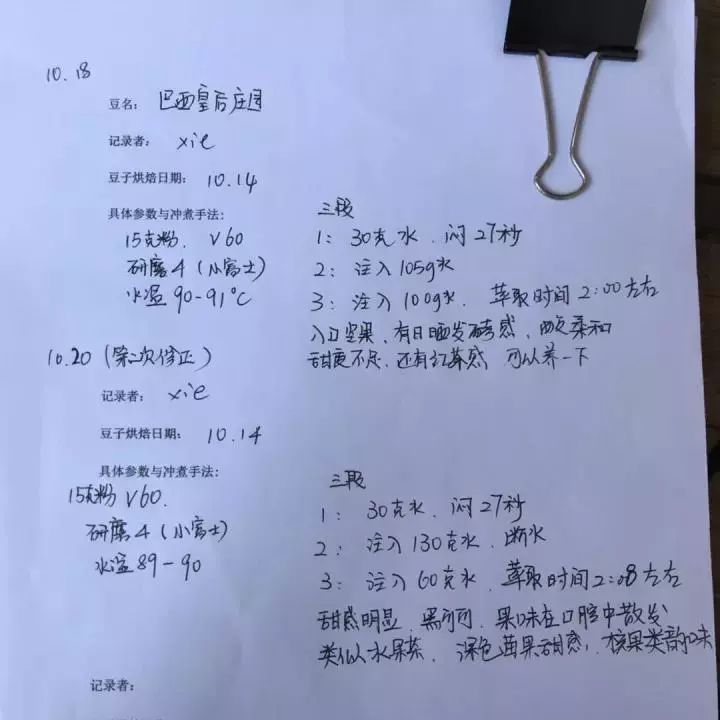 10.18
豆名： 巴西皇后庄园
记录者： xie
豆子烘焙日期： 10.14
具体参数与冲煮手法：
15克粉． V60
研磨4（小富士）
水温 90-91℃
三段
1： 30克水．闷27秒
2： 注入105g水
3： 注入100g水． 萃取时间2:00左右
入口坚果，有日晒发酵感，酸质柔和
甜度不足，还有红茶感 可以养一下
10.20（第二次修正）
记录者： xie
豆子烘焙日期： 10.14
具体参数与冲煮手法：
15克粉 V60．
研磨4（小富士）
水温89-90
三段
1： 30克水，闷27秒
2： 注入130克水．断水
3： 注入60克水．萃取时间2:08左右
甜感明显．黑可可．果味在口腔中散发
类似水果茶． 深色莓果甜感，核果类韵味
记录者：